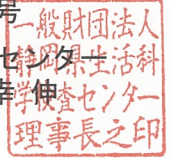 号
センター
幸 伸
一般財団法人
静岡県生活科
学検査センター
理事長之印